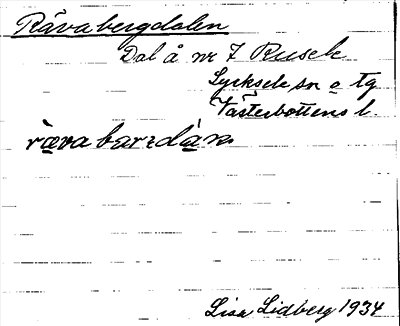 Rävabergdalen
Dal å nr 7 Rusele
Lycksele sn o tg
Västerbottens l.
Lisa Lidberg 1934